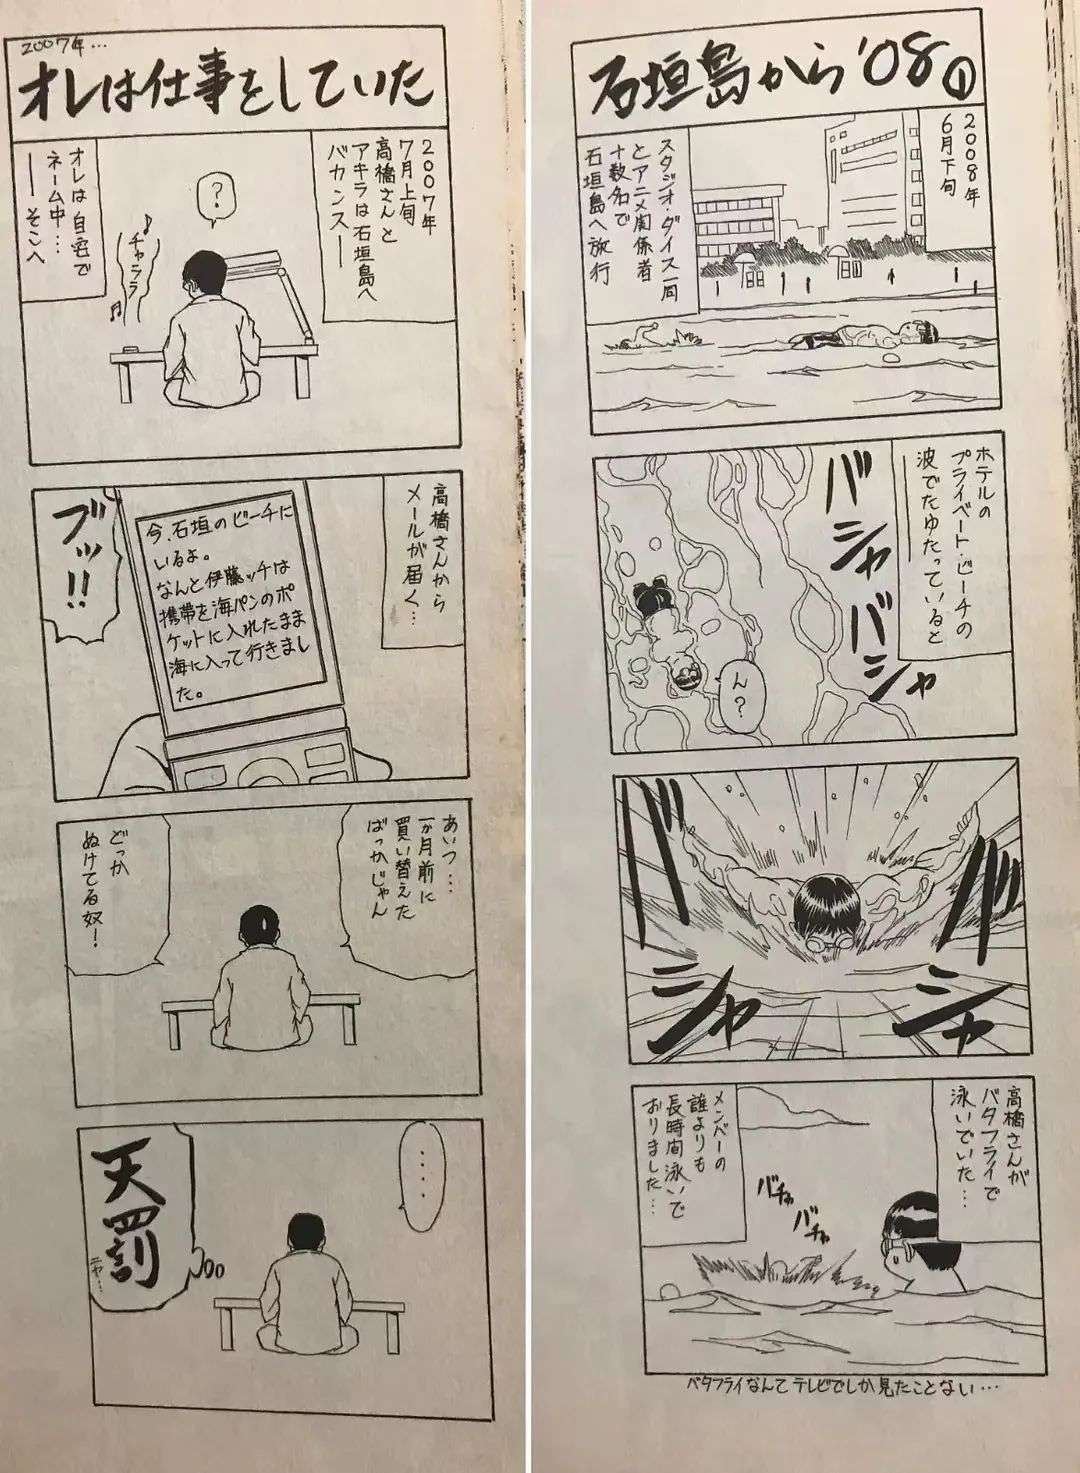 2007年…
オレは仕事をしていた
2007年
7月上旬
高橋さんと
アキラは石垣島へ
バカンス――
?
♪
チャララ
♬
オレは自宅で
ネーム中…
――そこへ
高橋さんから
メールが届く…
今、石垣のビーチに
いるよ。
なんと伊藤ッチは
携帯を海パンのポ
ケットに入れたまま
海に入って行きまし
た。
ブッ!!
あいつ…
一か月前に
買い替えた
ばっかじゃん
どっか
ぬけてる奴!
‥‥
天罰
ニヤ…
石垣島から'08①
2008年
6月下旬
スタジオ・ダイス一同
とアニメ関係者
十数名で
石垣島へ旅行
ホテルの
プライベート・ビーチの
波でたゆたっていると
――
バシャ
バシャ
ん?
バシャ
バシャ
高橋さんが
バタフライで
泳いでいた…
メンバーの
誰よりも
長時間泳いで
おりました…
バチャ
バチャ
バタフライなんてテレビでしか見たことない…